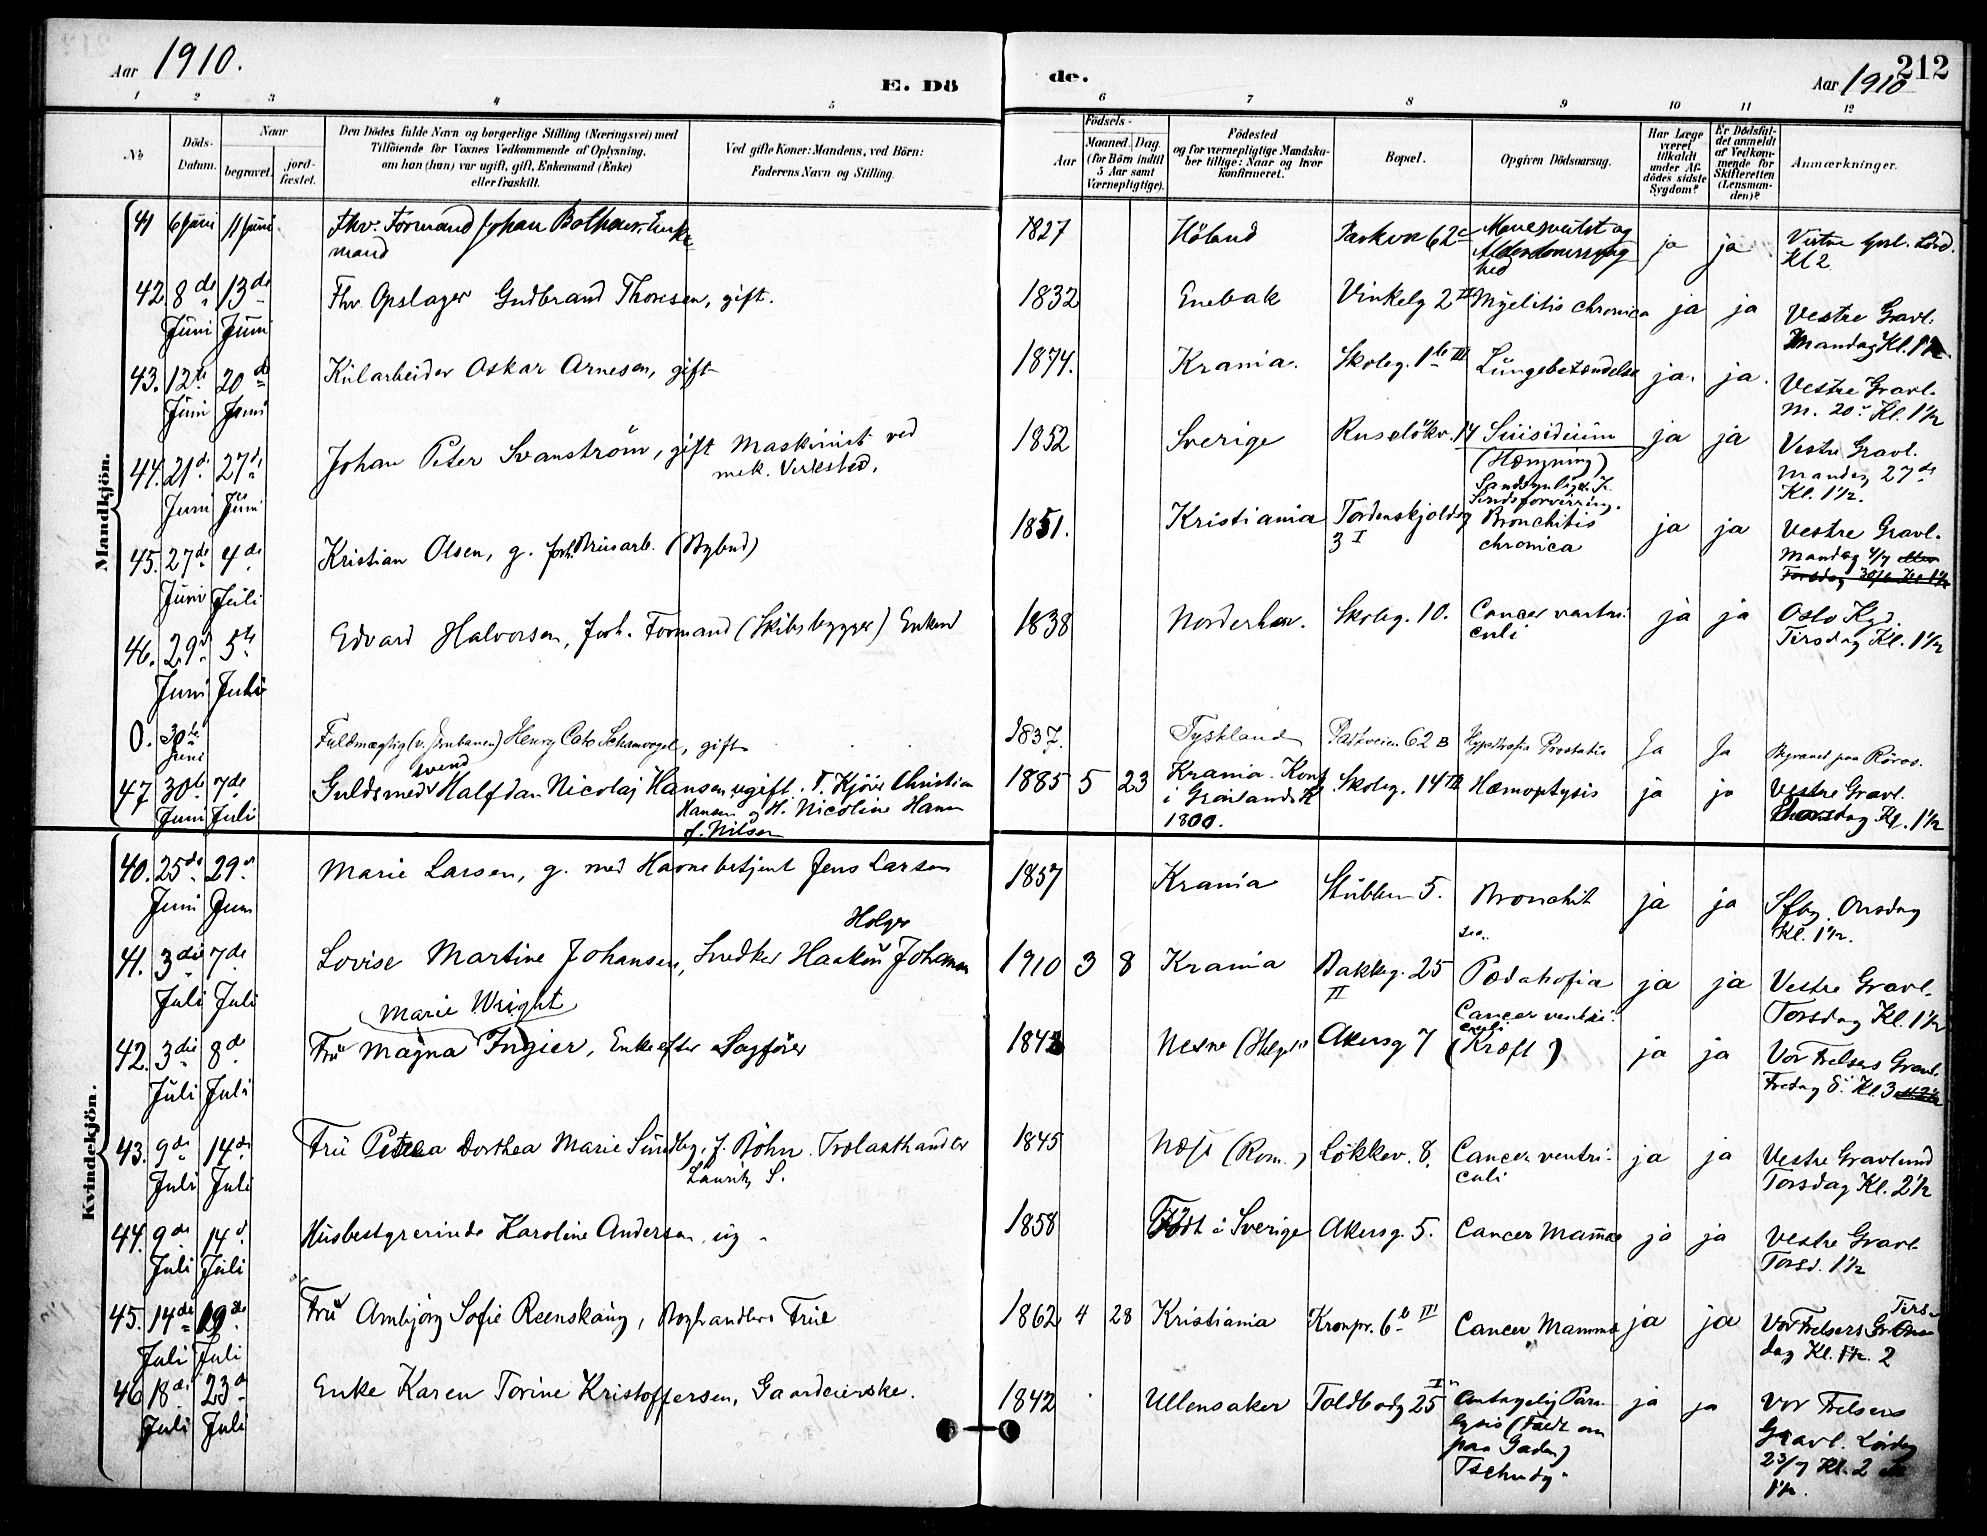 Aar 1910.
E. Dö
de.
212
Aar 1910
1 2 3 4 5 6 7 8 9 10 11 12
No
Döds-
Datum.
Naar
begravet.
jord-
fæstet.
Den Dödes fulde Navn og borgerlige Stilling (Næringsvei) med
Tilföiende for Voxnes Vedkommende af Oplysning,
om han (hun) var ugift, gift, Enkemand (Enke)
eller fraskilt.
Ved gifte Koner: Mandens, ved Börn:
Faderens Navn og Stilling.
Födsels-
Aar
Maaned. Dag.
(for Börn indtil
5 Aar samt
Værnepligtige).
Födested
og for værnepligtige Mandska-
ber tillige: Naar og hvor
Konfirmeret.
Bopæl.
Opgiven Dödsaarsag.
Har Læge
været
tilkaldt
under Af-
dödes sidste
Sygdom?
Er Dödsfal-
det anmeldt
af Vedkom-
mende for
Skifteretten
(Lensman-
den)?
Anmærkninger.
Mandkjön.
41 6 Juni 11 Juni Fhv. Formand Johan Enke
mand
1827 Höland Parkvn 62c og
hed
ja ja Vestre Grl. Lörd.
Kl 2
42 8de Juni 13de Juni Fhv Opslager Gudbrand Thoresen, gift.
1832 Enebak Vinkelg 2 III Myelitis chronica ja ja Vestre Gravl.
Mandag Kl. 1½
43. 12te Juni 20de Juni Kularbeider Oskar Arnesen, gift
1874. Krania. Skoleg. 1b III Lungebetændelse ja. ja. Vestre Gravl.
M. 20. Kl. 1½
44. 21de Juni 27de Juni Johan Peter Svanström, gift Maskinist ved
mek. Verksted.
1852 Sverige Ruselökv. 14 Suisidium
(Hængning)
Sandsynligv. i
Sindsforvirring.
ja ja Vestre Gravl.
Mandag 27de
Kl. 1½.
45. 27de Juni 4de Juli Kristian Olsen, g. forh. Brusarb. (Bybud)
1851. Kristiania Tordenskjoldsg
3 I
Bronchitis
chronica
ja ja Vestre Gravl.
Mandag 4/7 eller
Torsdag 30/6 Kl 1½
46. 29de Juni 5te Juli Edvard Halvorsen, forh. Formand (Skibsbygger) Enkemd
1838 Norderhov. Skoleg. 10. Cancer ventri
culi
ja ja Oslo Kgd.
Tirsdag Kl. 1½
0. 30te Juni Fuldmægtig (v. Jernbanen) Henry Cato Schanvogel, gift
1837. Tyskland Parkveien 62 B Hypertrofia Prostatis Ja Ja Begravet paa Röros.
47 30te Juni 7de Juli Guldsmedsvend Halfdan Nicolaj Hansen ugift. F. Kjörer Christian
Hansen og H. Nicoline Hansen
f. Nilsen
1885 5 23 Krania. Konf
i Grönlands K
1800.
Skoleg. 14 III Hæmoptysis ja ja Vestre Gravl.
Torsdag Kl. 1½
Kvindekjön.
40. 25de Juni 29de Juni Marie Larsen, g. med Havnebetjent Jens Larsen
1857 Krania Stubben 5. Bronchit ja ja Sfby. Onsdag
Kl. 1½.
41. 3die Juli 7de Juli Lovise Martine Johansen, Snedker Haakon Johansen
Holger
1910 3 8 Krania Bakkeg. 25
II
Pædatrofia ja ja Vestre Gravl.
Torsdag Kl. 1½
42. 3die Juli 8de Juli Fru Magna Ingier, Enke efter Sagförer
Marie Wright
1842 Nesne (Helgel.) Akersg 7 Cancer ventri
culi
(Kræft)
ja ja Vor Frelsers Gravl.
Fredag 8. Kl. 3
43. 9de Juli 14de Juli Fru Petrea Dorthea Marie Sundby, f. Böhn. Trælasthandler
Lauritz S.
1845 Næs (Rom.) Lökkev. 8. Cancer ventri-
culi
ja ja Vestre Gravlund
Torsdag Kl. 2½
44. 9de Juli 14de Juli Husbestyrerinde Karoline Andersen ug.
1858 Födt i Sverige Akersg. 5. Cancer Mammæ ja ja Vestre Gravl.
Torsd. 1½
45. 14de Juli 19de Juli Fru Arnbjörg Sofie Reenskaug, Boghandlers Frue
1862 4 28 Kristiania Kronpr. 6b III Cancer Mammæ ja ja Vor Frelsers Gr. Tirs-
dag Kl. 2
46 18de Juli 23de Juli Enke Karen Torine Kristoffersen, Gaardeierske.
1842 Ullensaker Toldbodg 25 I Antagelig Para
lysis (Faldt om
paa Gaden)
Tschudy.
ja ja Vor Frelsers
Gravl. Lördag
23/7 Kl. 2
1½.